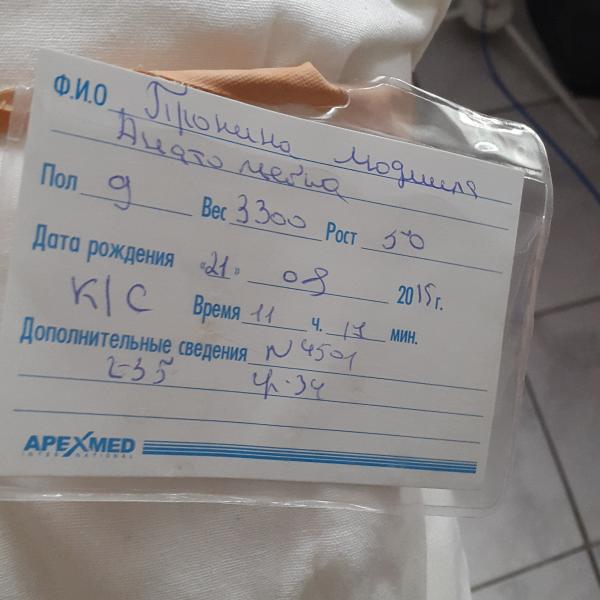 Ф.И.О Пронина Людмила
Анатольевна
Пол д Вес 3300 Рост 50
Дата рождения «21» 09 2015 г.
К/С Время 11 ч. 17 мин.
Дополнительные сведения N 4501
г-35 гр-34
APEXMED
INTERNATIONAL